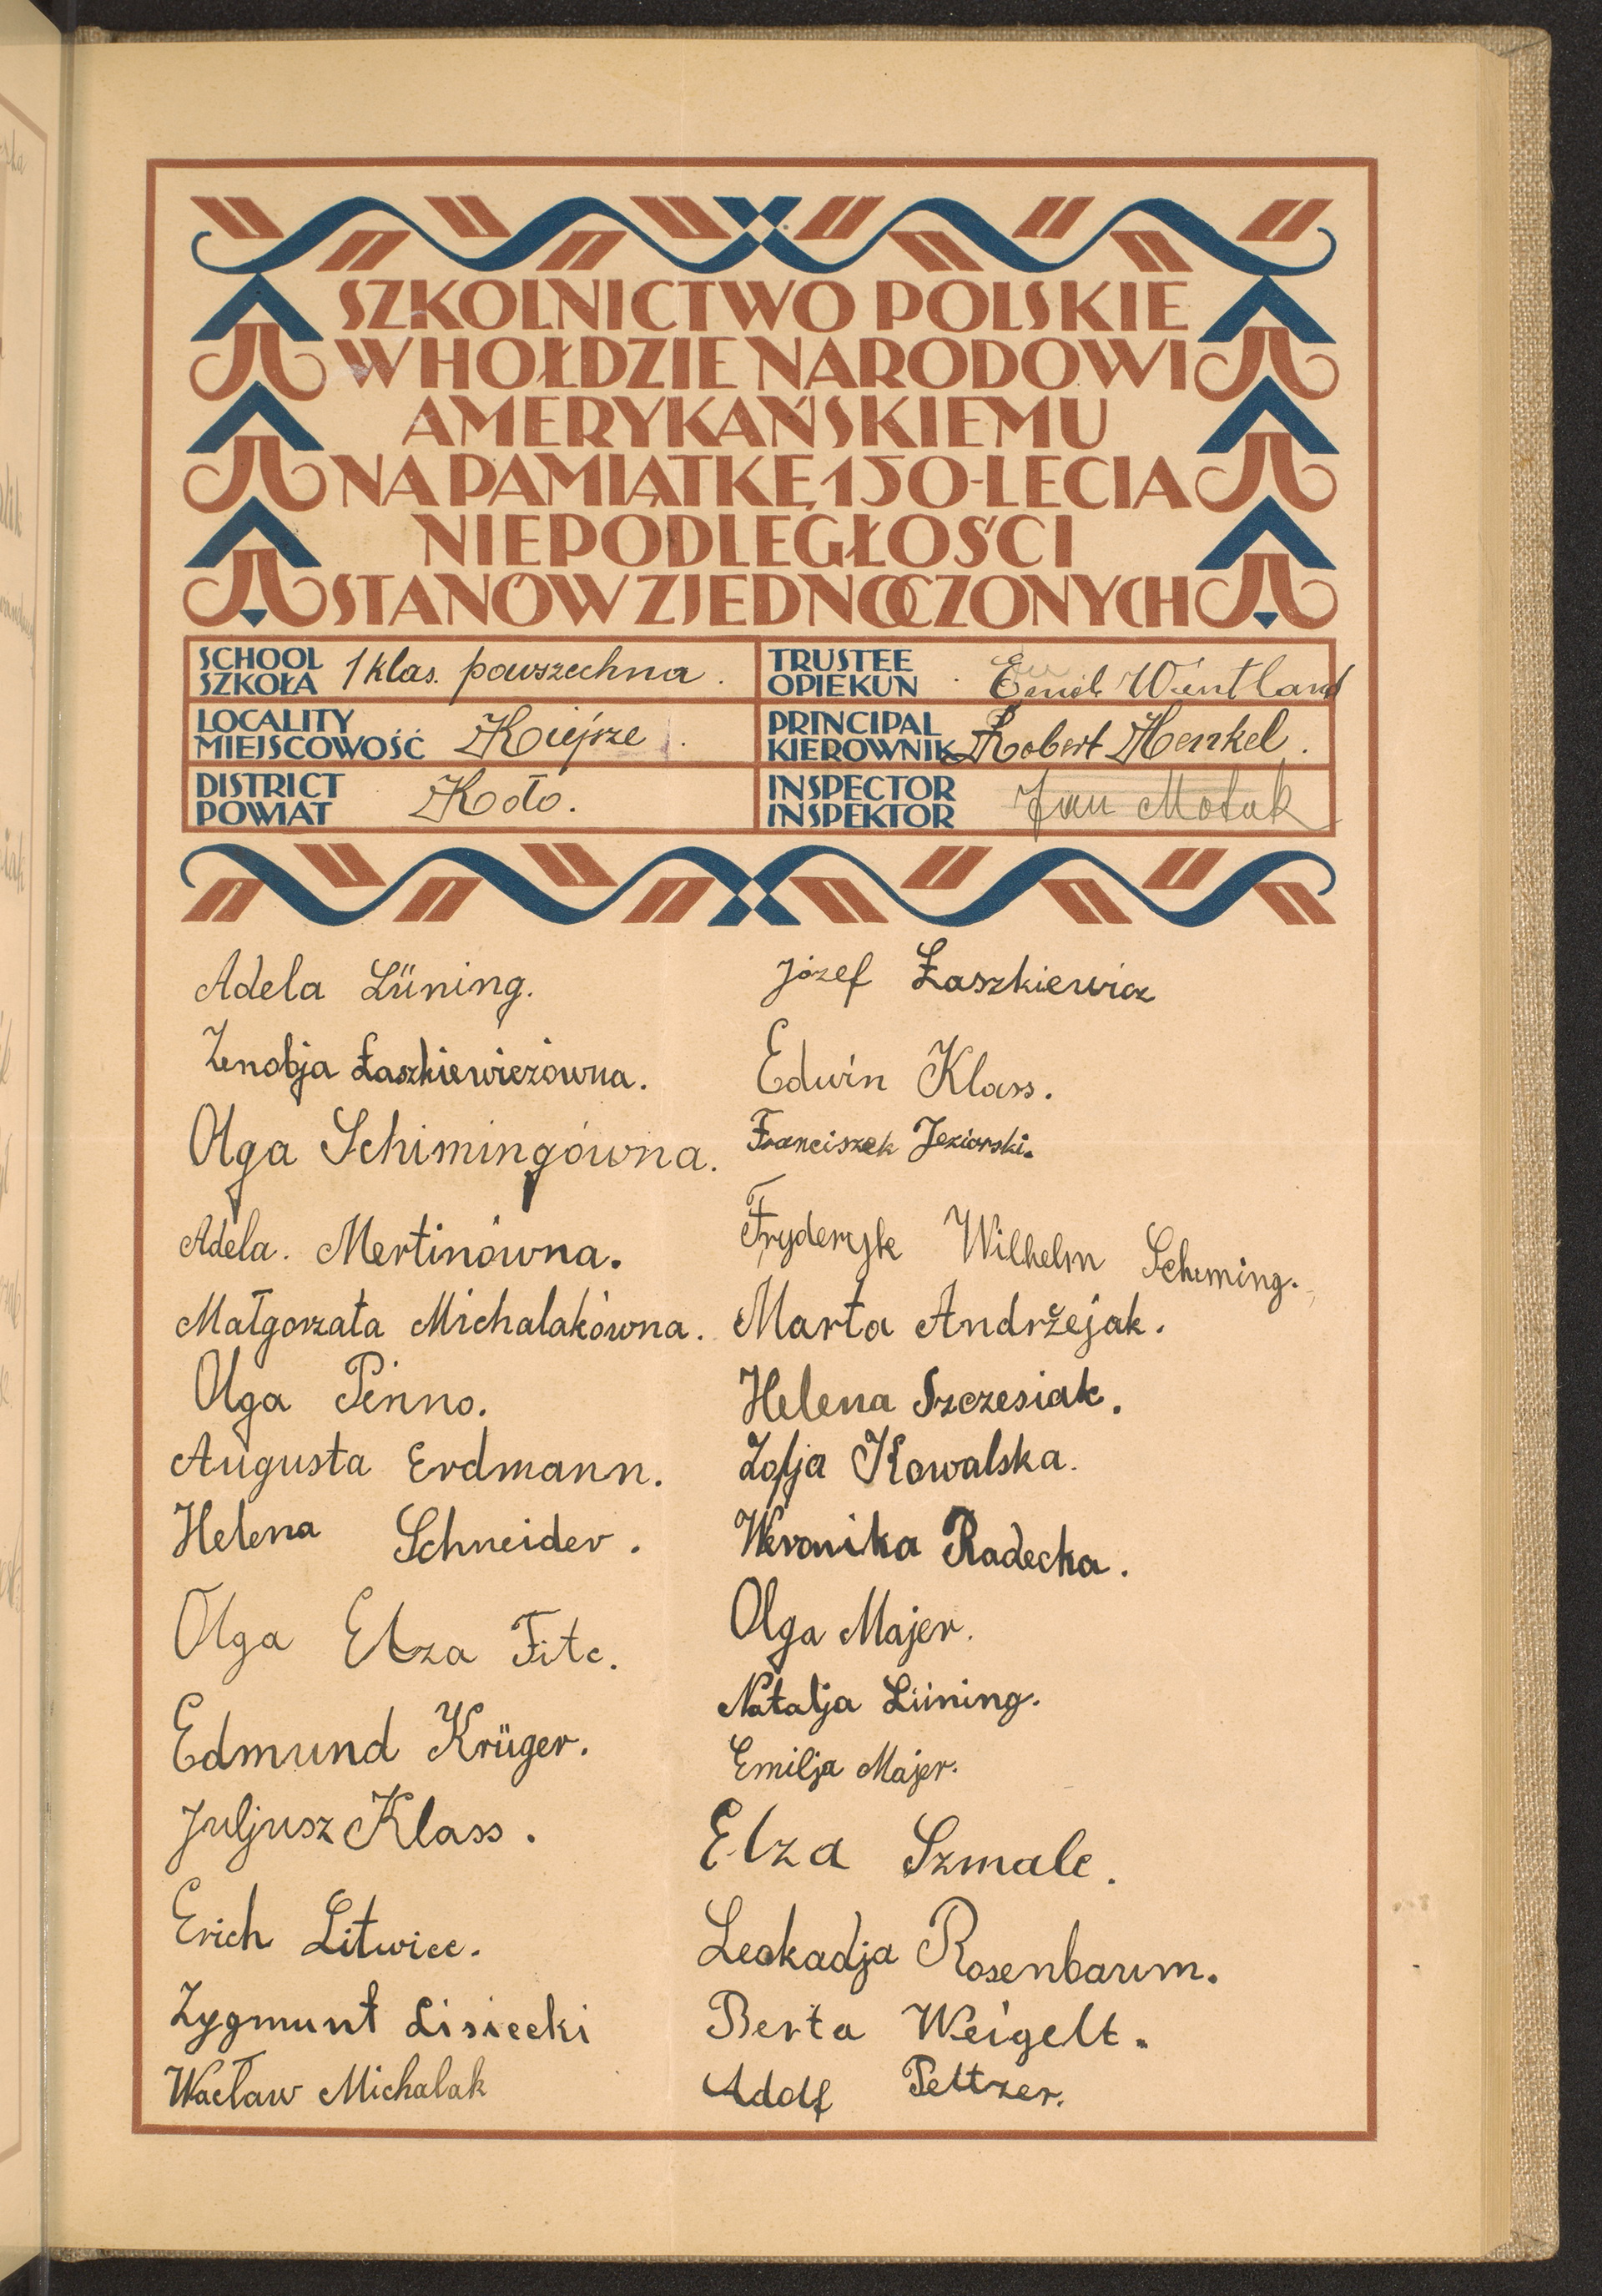 SZKOLNICTWO POLSKIE
W HOŁDZIE NARODOWI
AMERYKAŃSKIEMU
NA PAMIĄTKĘ 150-LECIA
NIEPODLEGŁOŚCI
STANÓW ZJEDNOCZONYCH
SCHOOL
SZKOŁA 1 klas. powszechna.
TRUSTEE
OPIEKUN Emil Wentland
LOCALITY
MIEJSCOWOŚĆ Kiejsze.
PRINCIPAL
KIEROWNIK Robert Henkel.
DISTRICT
POWIAT Koło.
INSPECTOR
INSPEKTOR Jan
Adela Lüning.
Zenobja Łaszkiewiczówna.
Olga Schimingówna.
Adela. Mertinówna.
Małgorzata Michalakówna.
Olga Penno.
Augusta Erdmann.
Helena Schneider.
Olga Elza Fitc.
Edmund Krüger.
Juljusz Klass.
Erich Litwicc.
Zygmunt Lisiecki
Wacław Michalak
Józef Łaszkiewicz
Edwin Klass.
Franciszek Jeziorski.
Fryderyk Wilhelm Scheming.
Marta Andržejak.
Helena Szczesiak.
Zofja Kowalska.
Weronika Radecka.
Olga Majer.
Natalja Lüning.
Emilja Majer.
Elza Szmalc.
Leokadja Rosenbaum.
Berta Weigelt.
Adolf Peltzer.